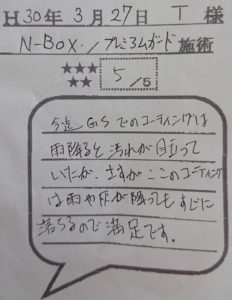 H30年3月27日 T 様
N-BOX./プレミアムガード 施術
★★★
★★ 5/5
今迄GSでのコーティングは
雨降ると汚れが目立って
いたが、ますがここのコーティング
は雨や灰が降ってもすぐに
落ちるので満足です。